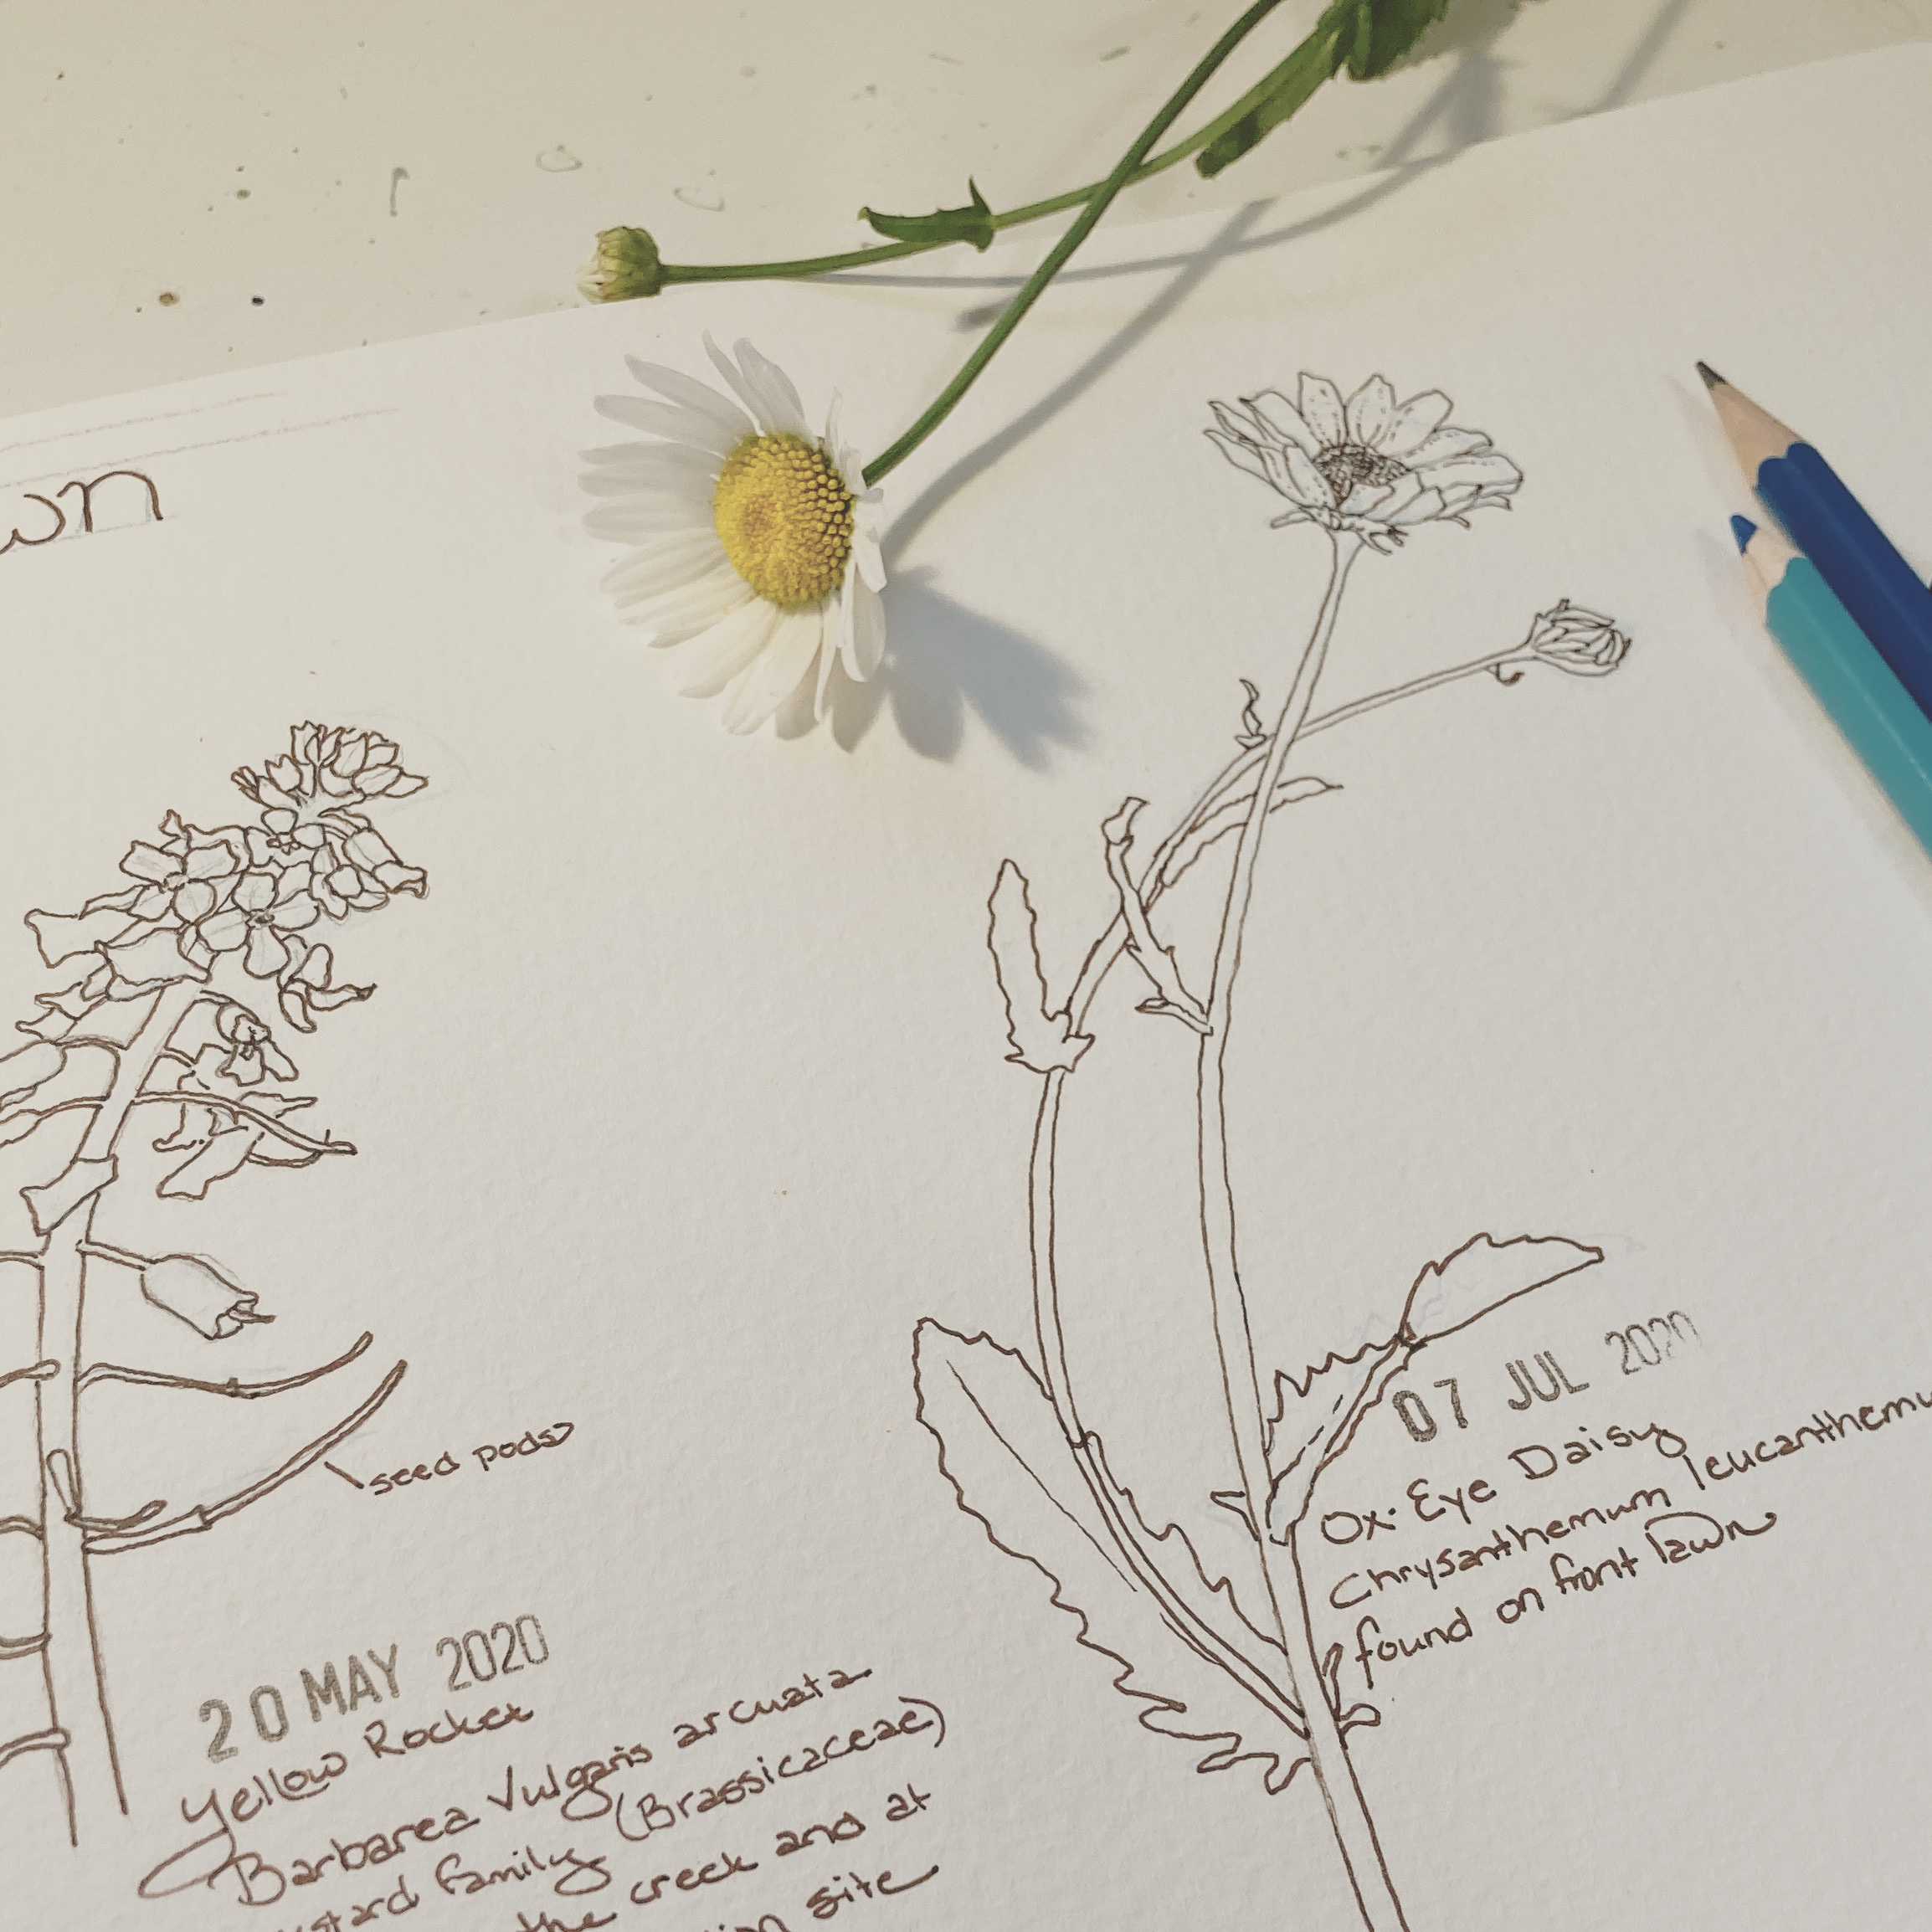 wn
seed pods
20 MAY 2020
Yellow Rocket
Barbarea Vulgaris arcuata
family (Brassicaceae)
the creek and at
site
07 JUL 2020
Ox-Eye Daisy
Chrysanthemum leucanthemu
found on front lawn